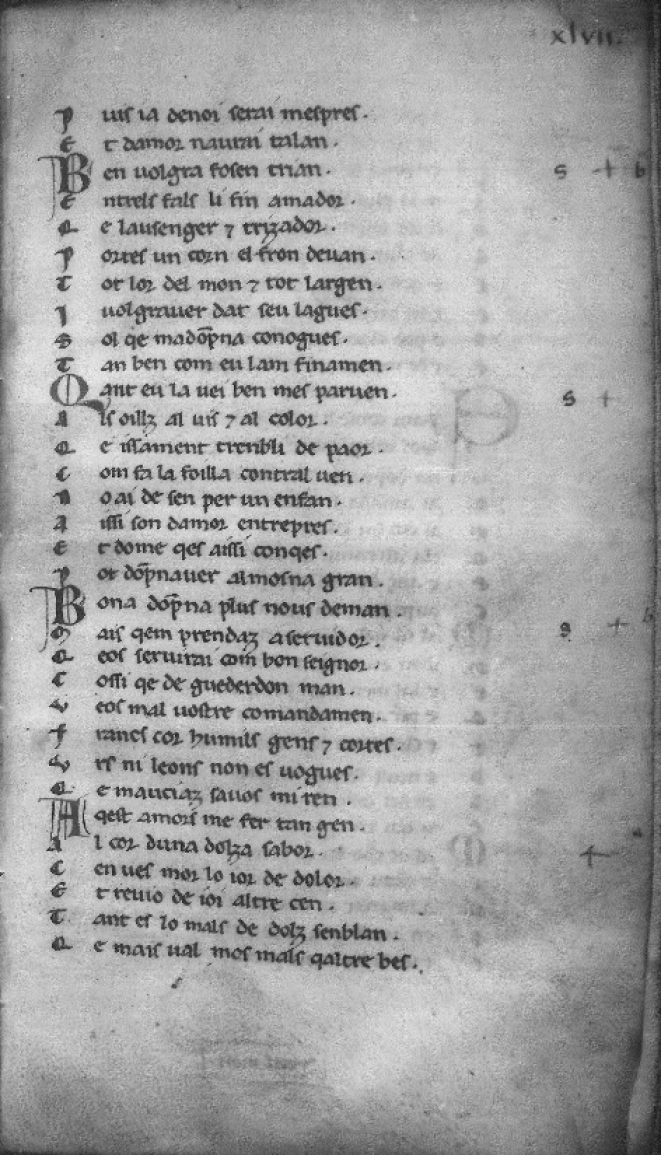 xlvii.
P uis ia denoi serai mespres.
E t damor naurai talan.
B en uolgra fosen trian.
E ntrels fals li fin amador.
Q e lausenger ⁊ trizador.
P ortes un corn el fron deuan.
T ot lor del mon ⁊ tot largen.
I uolgrauer dat seu lagues.
S ol qe madōpna conogues.
T an ben com eu lam finamen.
Q ant eu la uei ben mes paruen.
A ls oillz al uis ⁊ al color.
Q e issament trenbli de paor.
C om fa la foilla contral uen.
N o ai de sen per un enfan.
A issi son damor entrepres.
E t dome qes aissi conqes.
P ot dōpnauer almosna gran.
B ona dōpna plus nous deman.
M ais qem prendaz a seruidor.
Q eos seruirai com bon seignor.
C ossi qe de guederdon man.
V eos mal uostre comandamen.
F rancs cor humils gens ⁊ cortes.
V rs ni leons non es uogues.
Q e mauciaz sauos mi ren.
A qest amors me fer tan gen.
A l cor duna dolza sabor.
C en ues mor lo ior de dolor.
E t reuio de ioi altre cen.
T ant es lo mals de dolz senblan.
Q e mais ual mos mals qaltre bes.